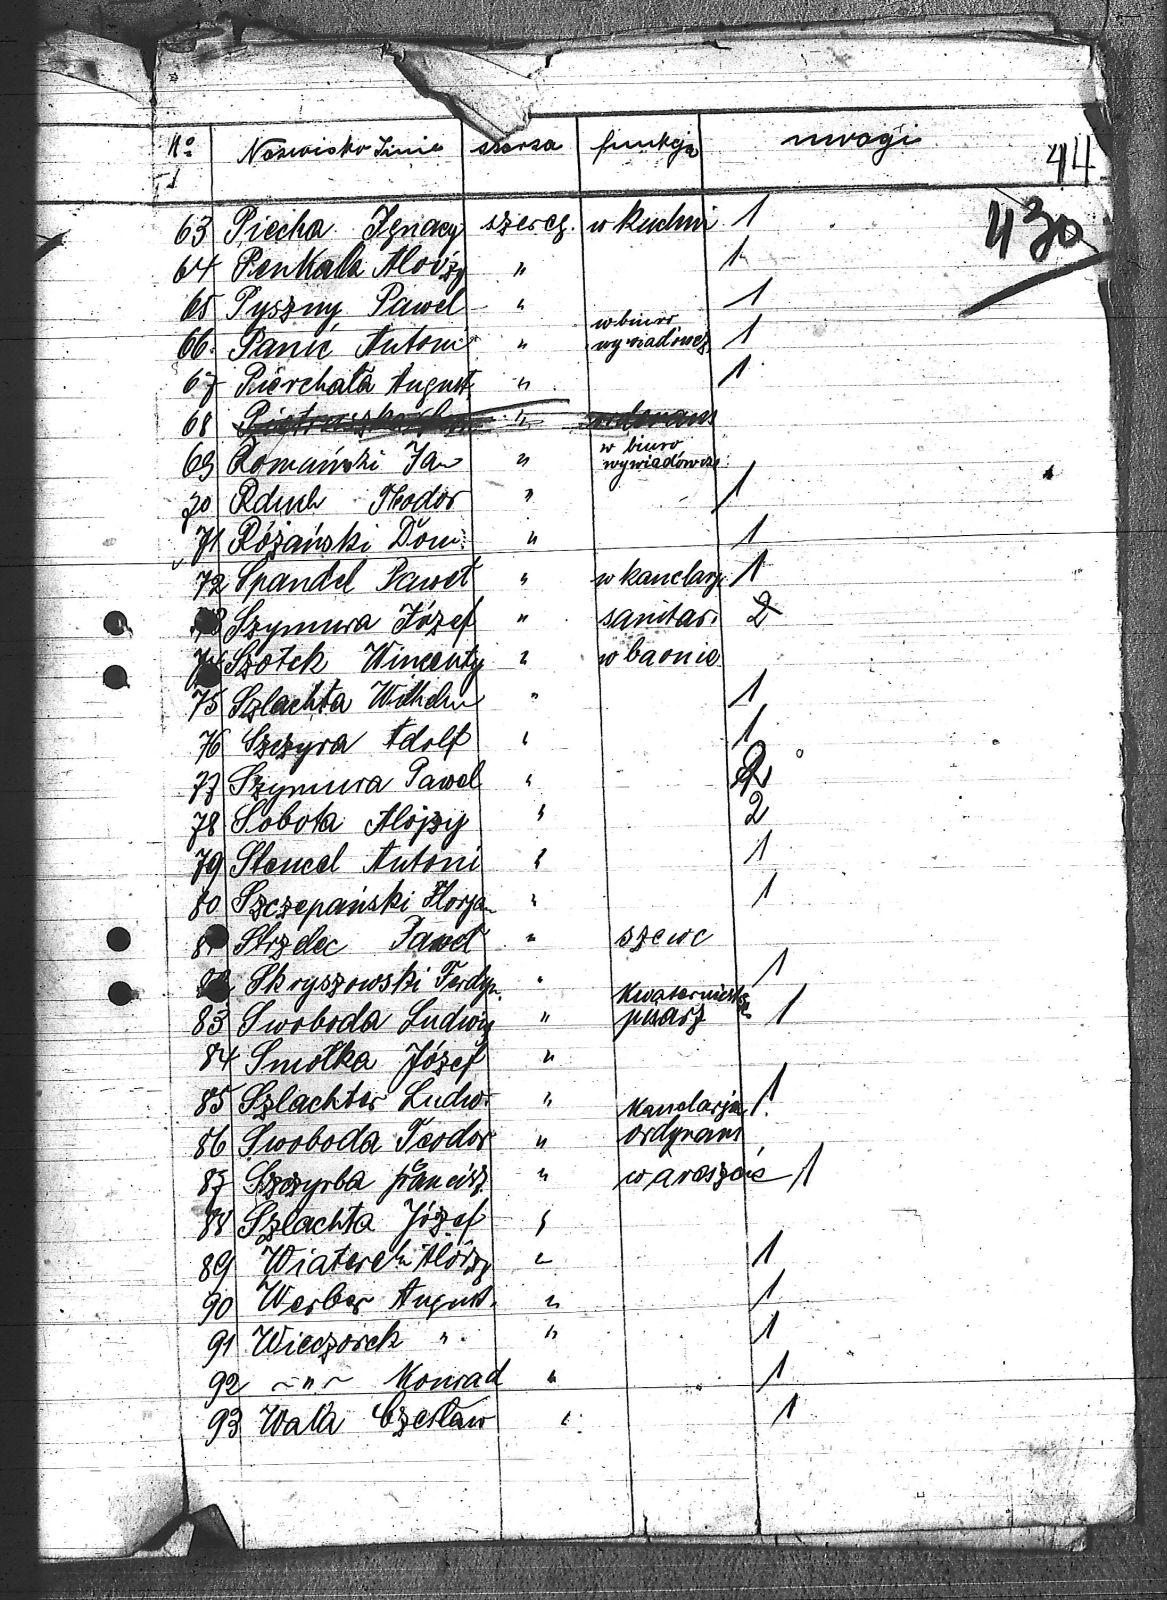 No Nazwisko Imie szarża funkcja uwagi
44
430
63 Piecha Ignacy szereg. w kuchni 1
64 Penkala Alojzy " 1
65 Pyszny Pawel " 1
66. Panic Antoni " w biuro wywiadowcz 1
67 Pierchała August " 1
68 "
69 Romański Jan " w biuro wywiadowcze
70 Rduch Teodor " 1
71 Różański Dom. " 1
72 Spandel Paweł " w kancelarj. 1
73 Szymura Józef " sanitar. 2
74 Szotek Wincenty " w baonie
75 Szlachta Wilhelm " 1
76 Szczyra Adolf " 1
77 Szymura Pawel " 2
78 Sobota Alojzy " 2
79 Stencel Antoni " 1
80 Szczepański Florjan " 1
81 Strzelec Paweł " szewc
82 Skryszowski Ferdyn. " 1
83 Swoboda Ludwig " kwatermistrz pisarz 1
84 Smołka Józef "
85 Szlachter Ludw. " 1
86 Swoboda Teodor " Kancelarja ordynans
87 Szczyrba Francisz " w areszcie 1
88 Szlachta Józef "
89 Wiaterek Alojzy " 1
90 Werber August. " 1
91 Wieczorek " " 1
92 ~"~ Konrad " 1
93 Wala Czesław " 1